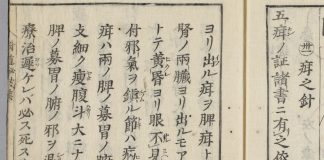 疳之針
五疳ノ証諸書ニ有之依
ヨリ出ル疳ヲ脾疳ト
腎ノ両臓ヨリ出ルモア
テ黄昏ヨリ眼不見
付邪氣ヲ鎮ル節ハ病
疳ハ両ノ脾ノ募胃ノ
支細ク瘦腹斗大ニナ
脾ノ募胃ノ腑ノ邪ヲ退
療治遅ケレバ必ス死ス